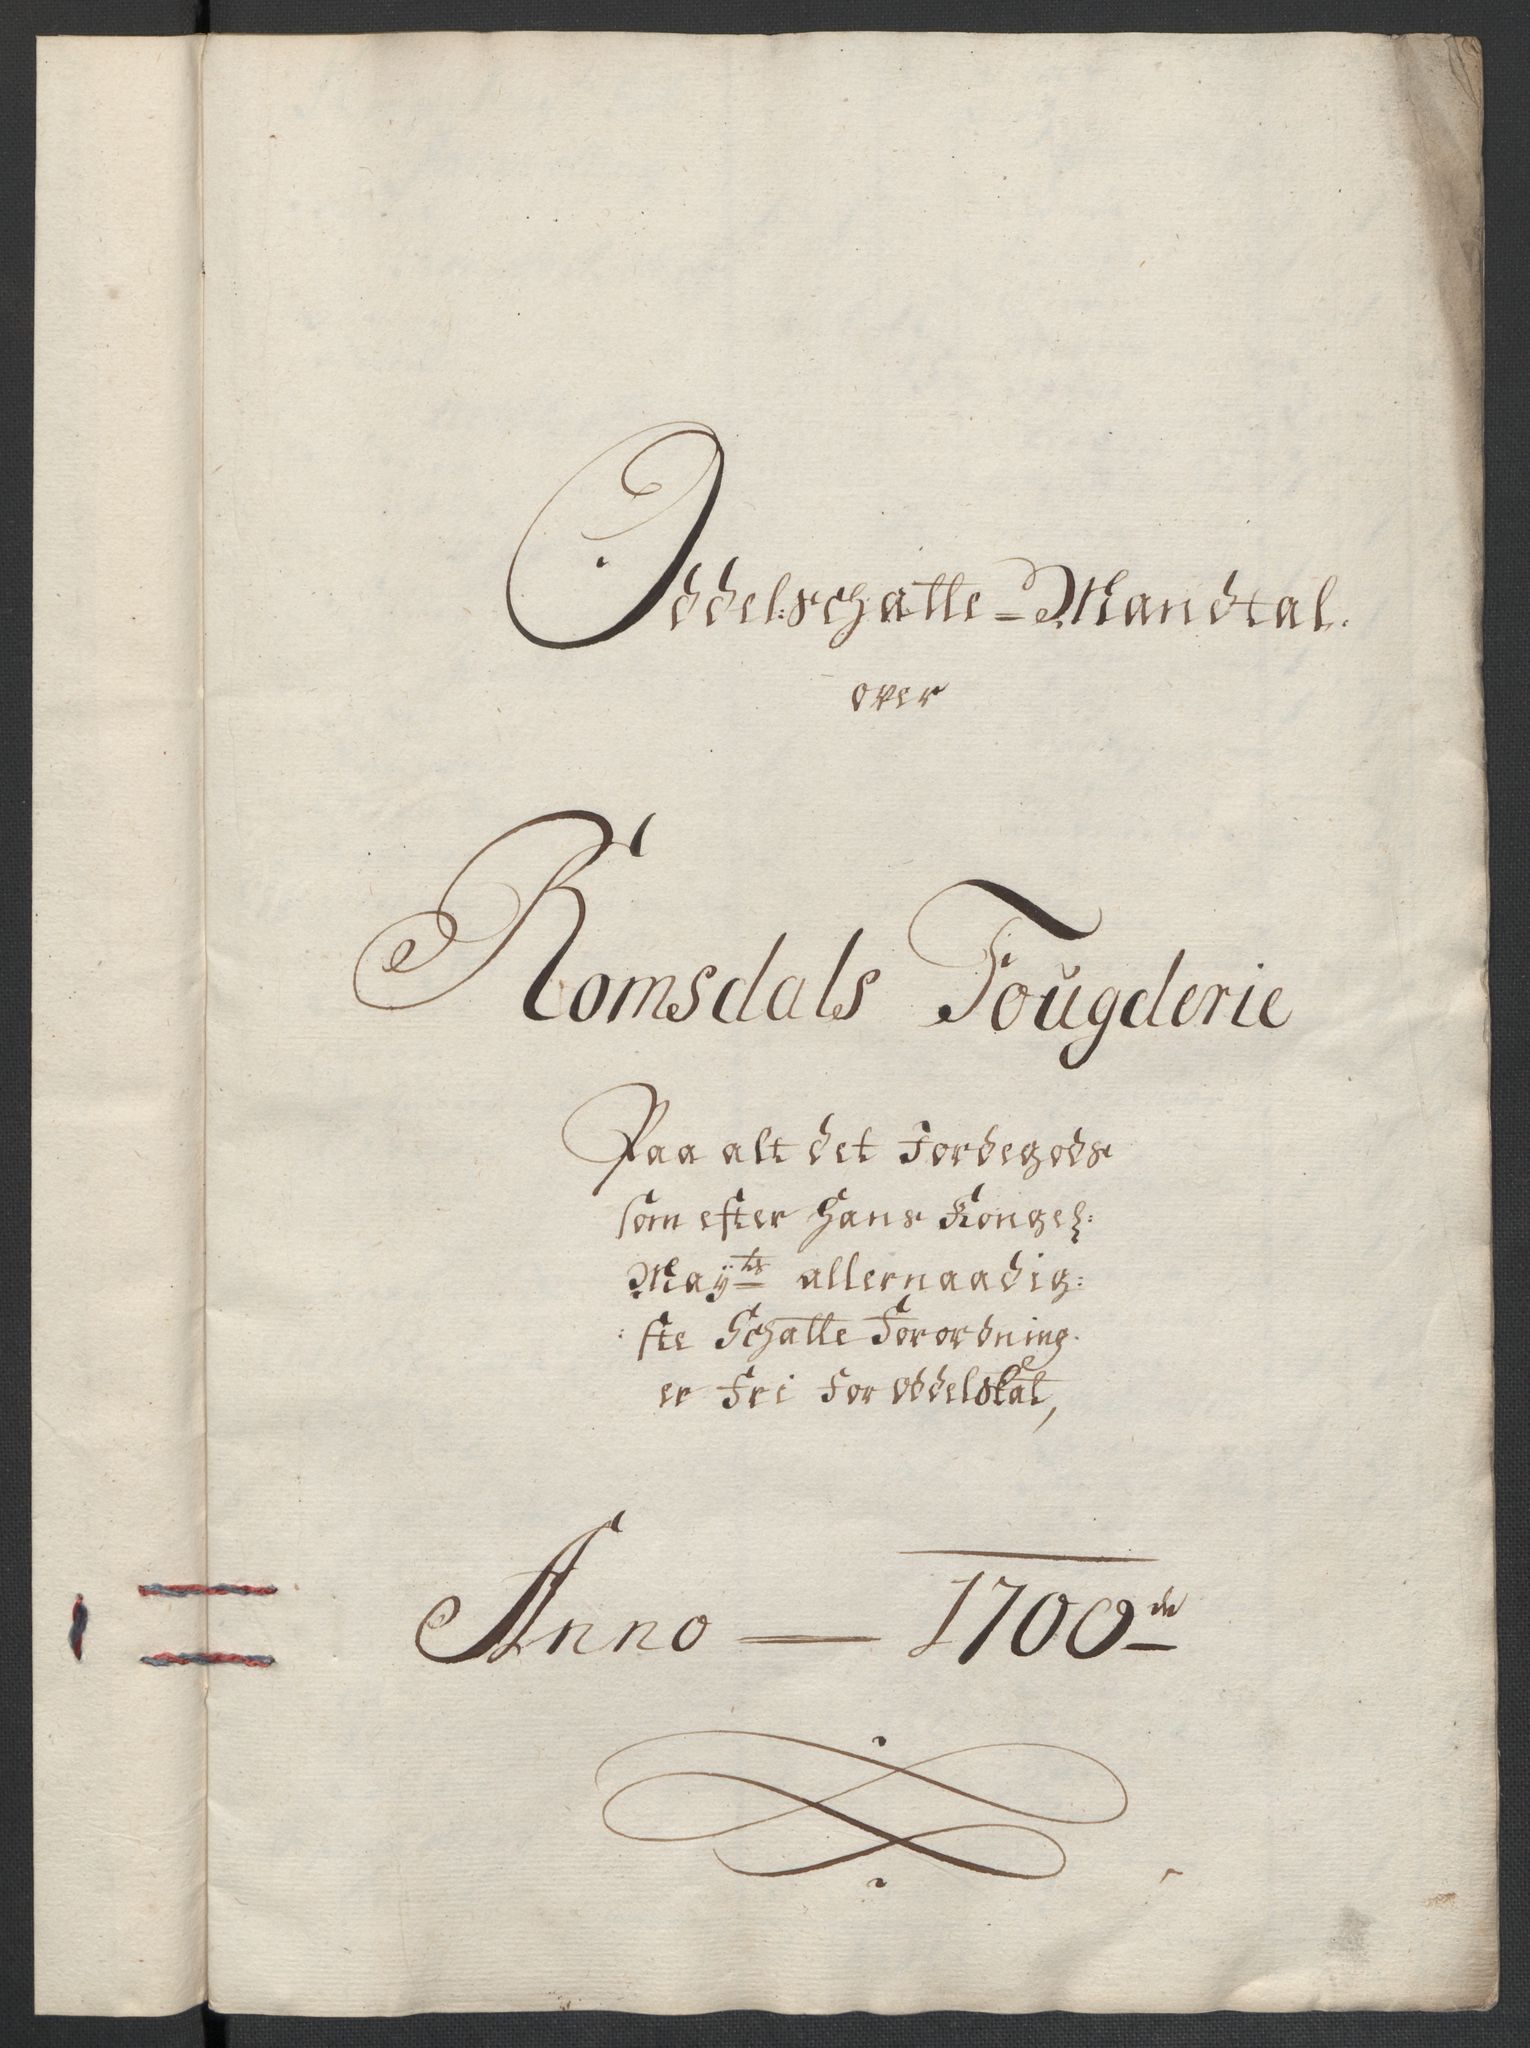 Oddel:schatte-Mandtal.
over
Romsdals Fougderie
Paa alt det Jordegods
som efter Hans Kongel:
Maÿ^ts allernaadig:
:ste Schatte Forordning
er Fri For Oddelskat,
Anno — 1700^de